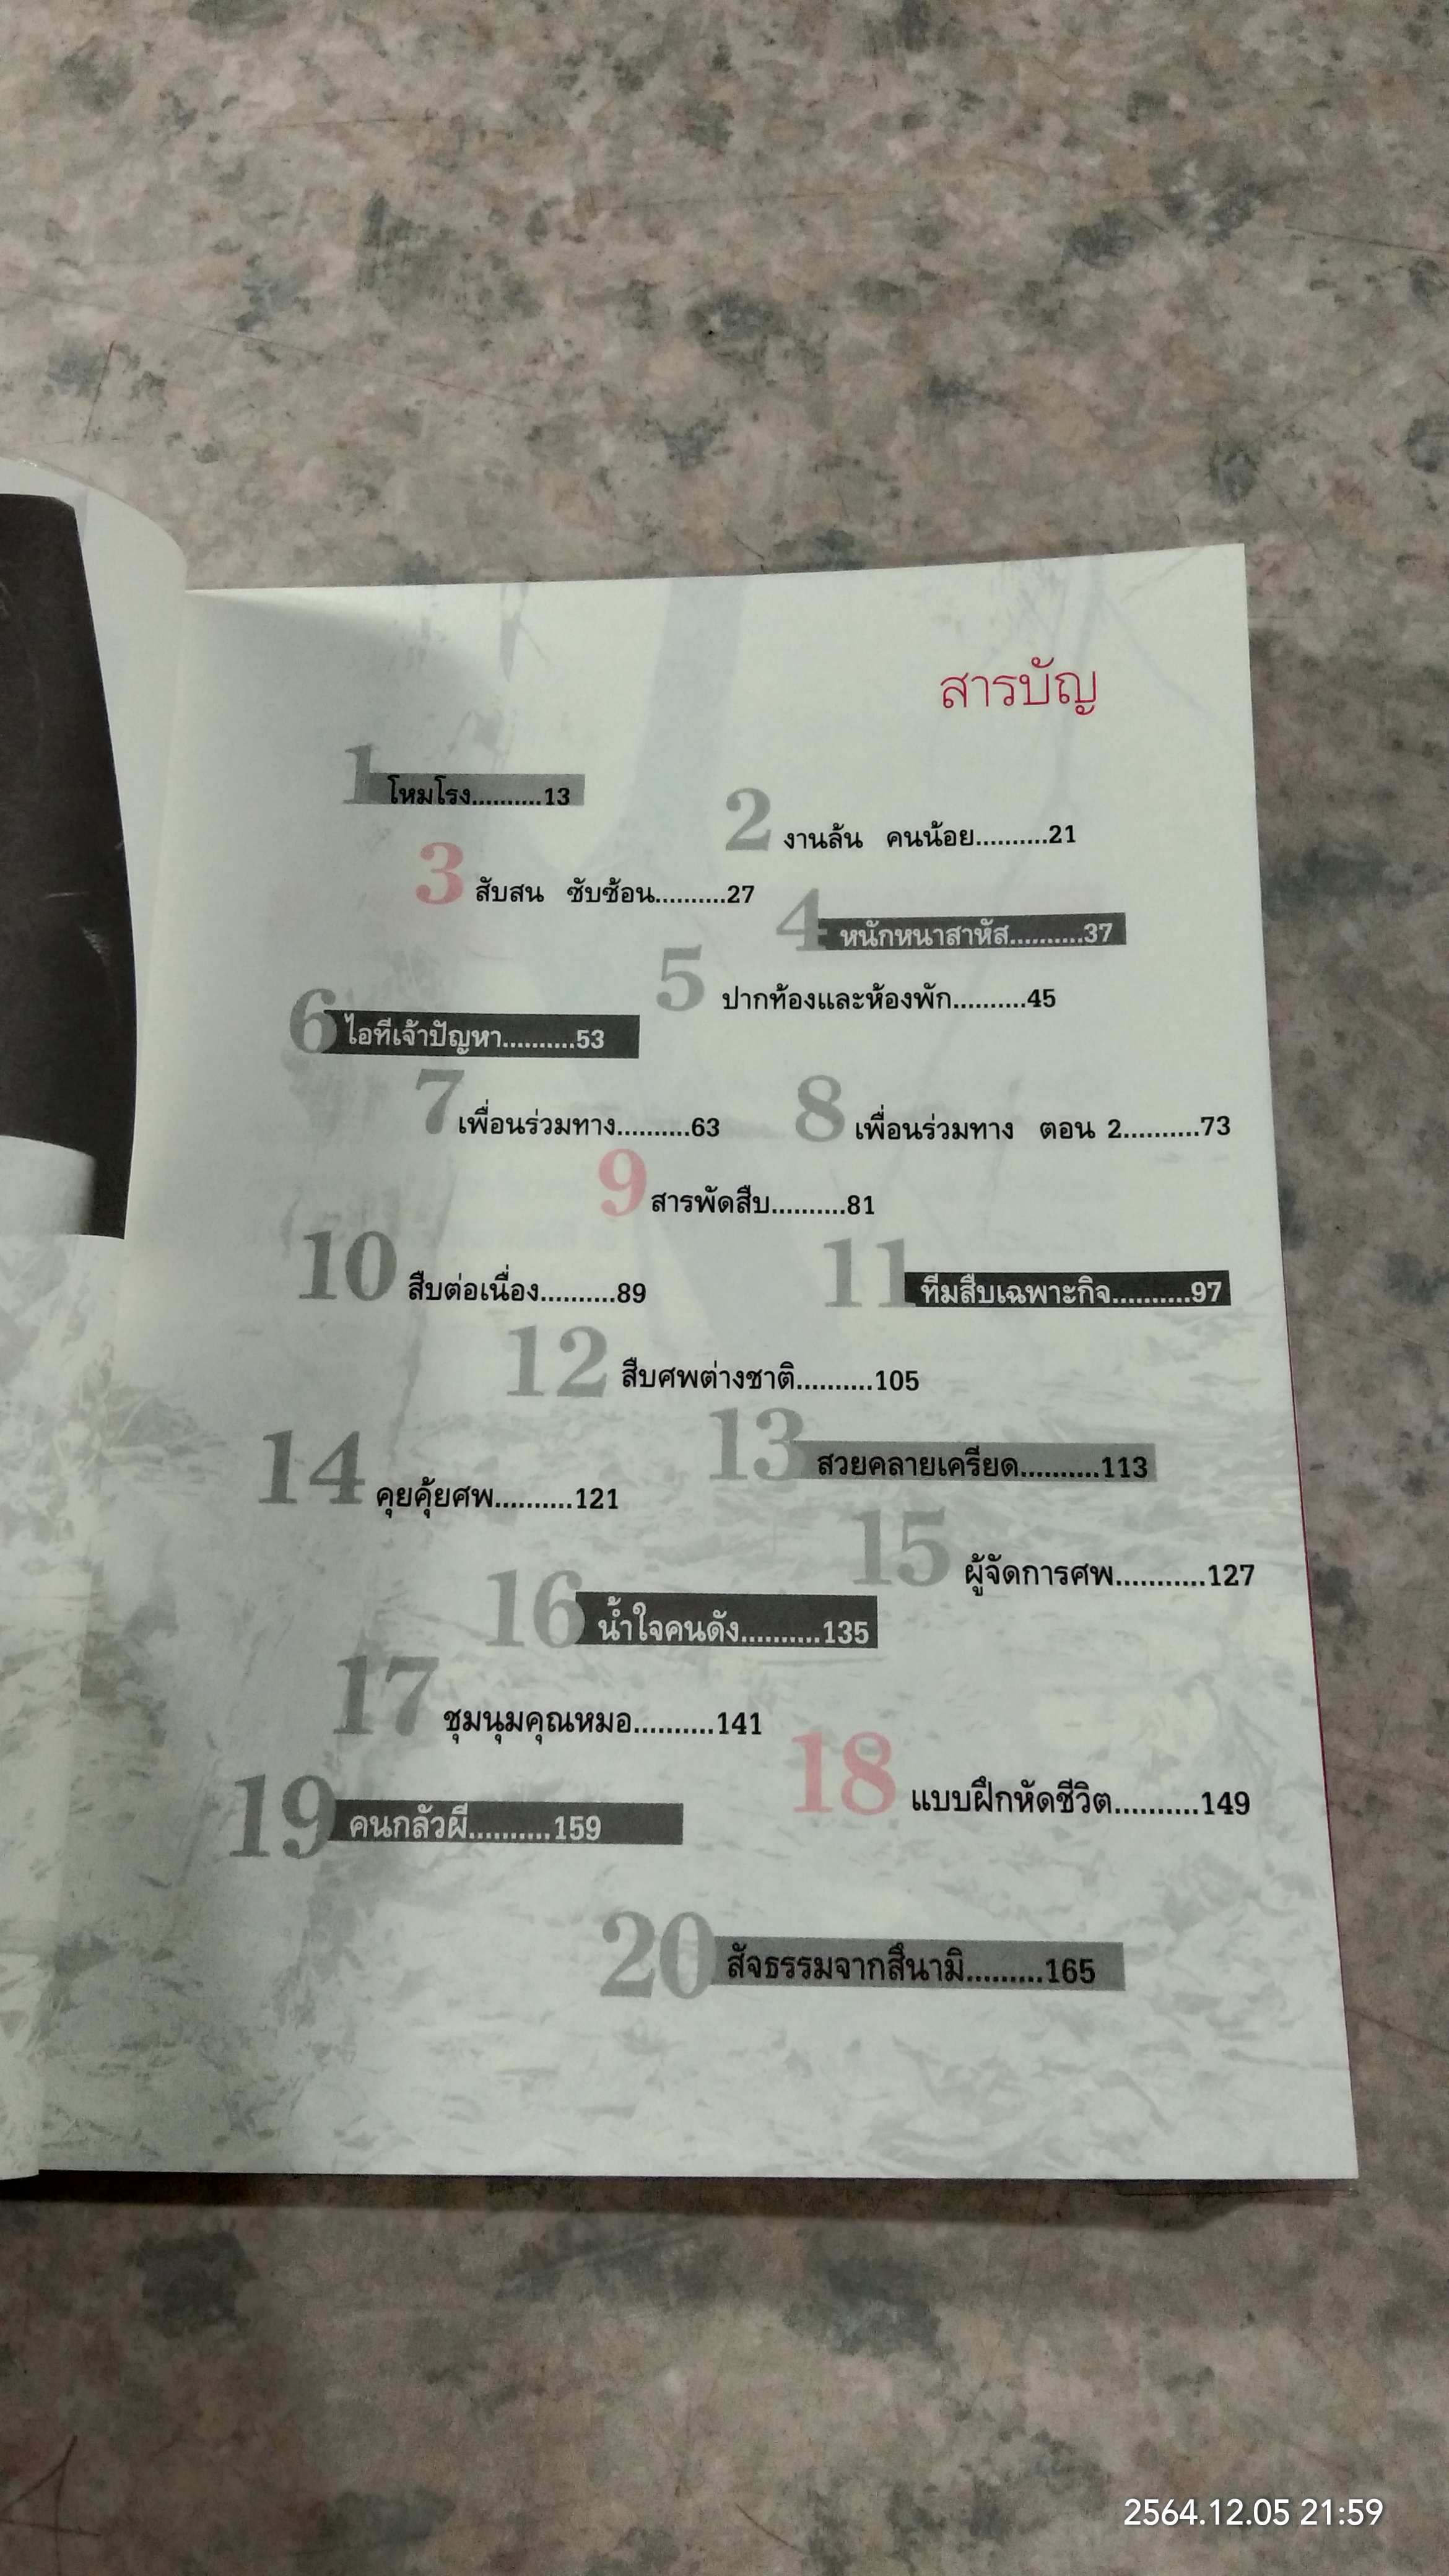 สารบัญ
1 โหมโรง..........13
2 งานล้น คนน้อย..........21
3 สับสน ซับซ้อน..........27
4 หนักหนาสาหัส..........37
5 ปากท้องและห้องพัก..........45
6 ไอทีเจ้าปัญหา..........53
7 เพื่อนร่วมทาง..........63
8 เพื่อนร่วมทาง ตอน 2..........73
9 สารพัดสืบ..........81
10 สืบต่อเนื่อง..........89
11 ทีมสืบเฉพาะกิจ..........97
12 สืบศพต่างชาติ..........105
13 สวยคลายเครียด..........113
14 คุยคุ้ยศพ..........121
15 ผู้จัดการศพ...........127
16 น้ำใจคนดัง..........135
17 ชุมนุมคุณหมอ..........141
18 แบบฝึกหัดชีวิต..........149
19 คนกลัวผี..........159
20 สัจธรรมจากสึนามิ.........165
2564.12.05 21:59